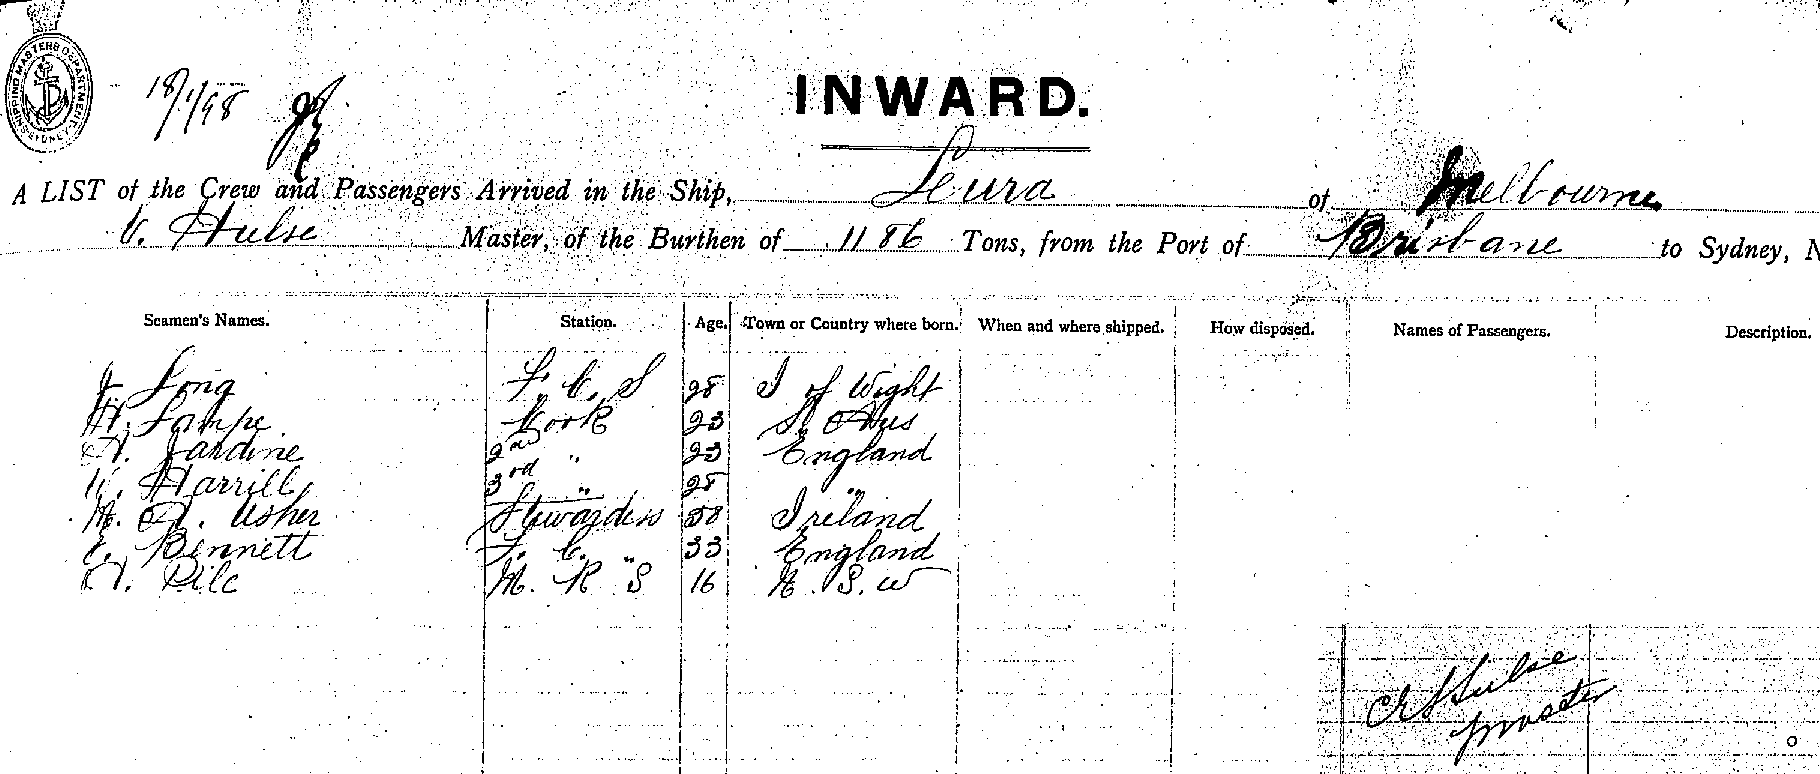 SHIPPING MASTERS DEPARTMENT SYDNEY
18/1/98
INWARD.
A LIST of the Crew and Passengers Arrived in the Ship, Leura of Melbourne
C. Hulse Master, of the Burthen of 1186 Tons, from the Port of Brisbane to Sydney, N
Seamen's Names. Station. Age. Town or Country where born. When and where shipped. How disposed. Names of Passengers. Description.
J. Long F. C. S 28 I of Wight
H. Lampe Cook 23 S. Aus
A. Jardine 2nd " 23 England
W. Harrill 3rd " 28 "
M. A. Usher Stewardess 50 Ireland
E. Bennett F. C. " 33 England
A. Pile M. R S 16 N. S. W
C Hulse
master